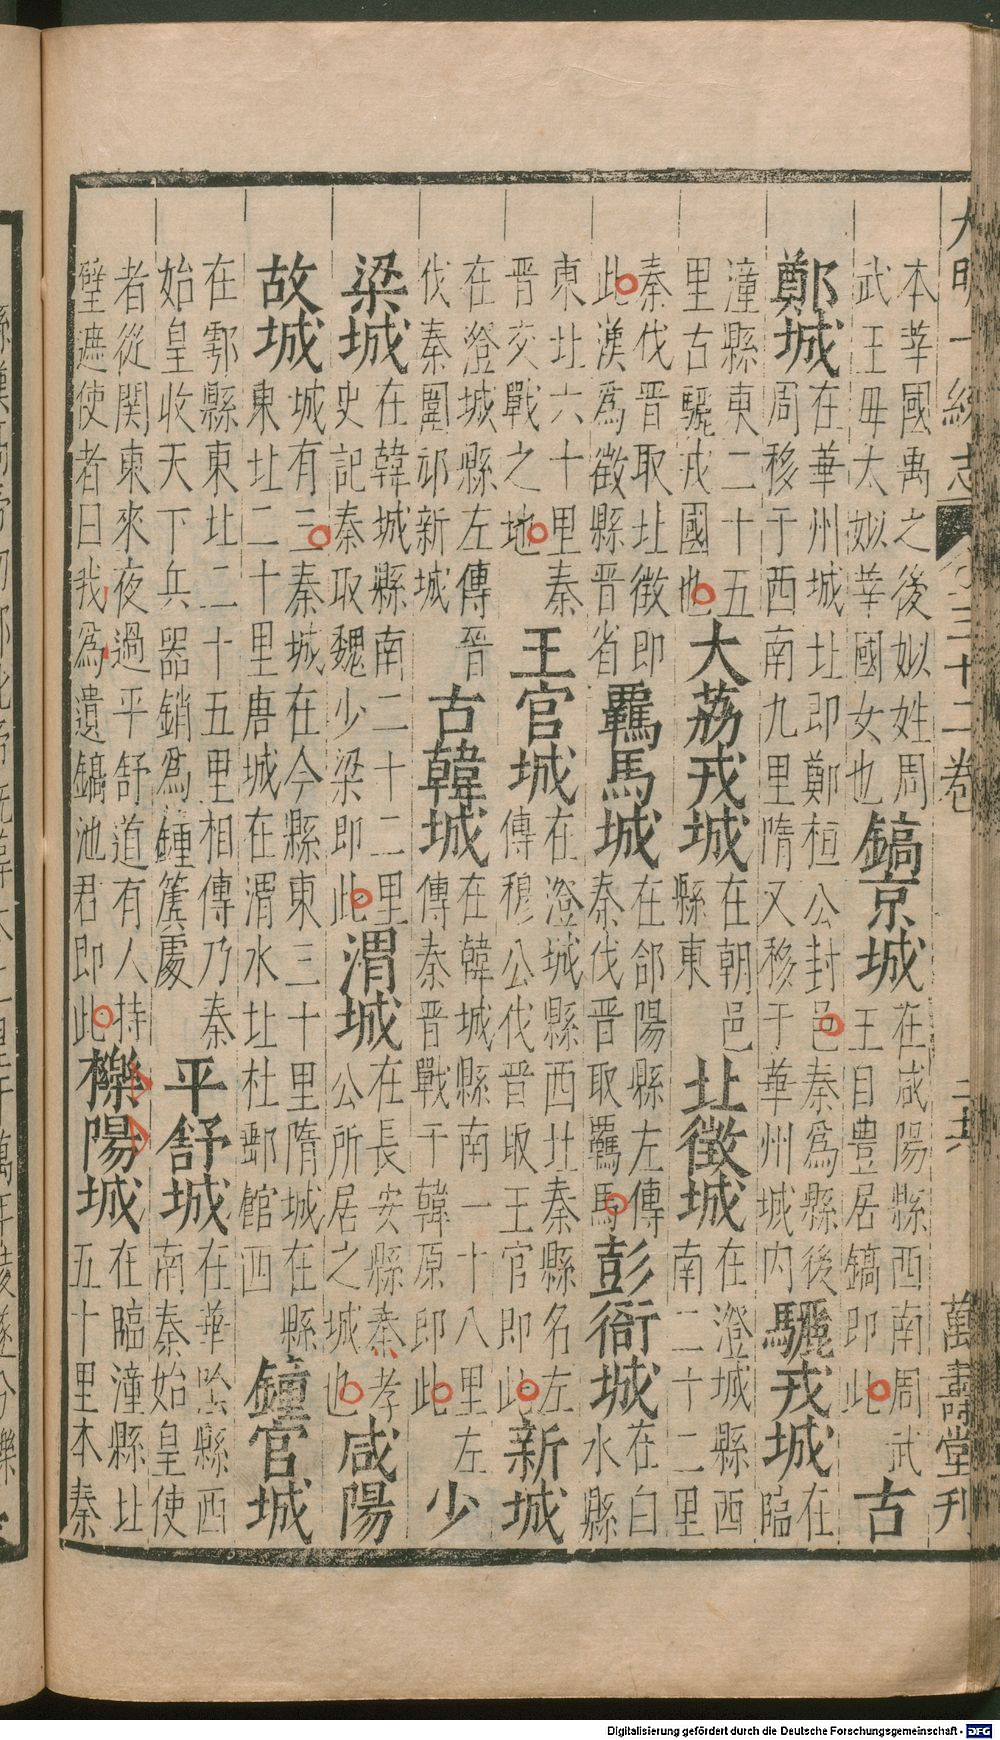 大明一統志 三十二卷 二十六 萬壽堂刊
本莘國禹之後姒姓周
武王毋太姒莘國女也
鎬京城
在咸陽縣西南周武
王自豊居鎬即此
古
鄭城
在華州城北即鄭桓公封邑秦為縣後
周移于西南九里隋又移于華州城内
驪戎城
在
臨
潼縣東二十五
里古驪戎國也
大荔戎城
在朝邑
縣東
北徵城
在澄城縣西
南二十二里
秦伐晋取北徵即
此漢為徵縣晋省
羈馬城
在郃陽縣左傳
秦伐晋取羈馬
彭衙城
在白
水縣
東北六十里秦
晋交戰之地
王官城
在澄城縣西北秦縣名左
傳穆公伐晋取王官即此
新城
在澄城縣左傳晋
伐秦圍邧新城
古韓城
在韓城縣南一十八里左
傳秦晋戰于韓原即此
少
梁城
在韓城縣南二十二里
史記秦取魏少梁即此
渭城
在長安縣秦孝
公所居之城也
咸陽
故城
城有三秦城在今縣東三十里隋城在縣
東北二十里唐城在渭水北杜郵館西
鍾官城
在鄠縣東北二十五里相傳乃秦
始皇收天下兵器銷為鍾簴處
平舒城
在華陰縣西
南秦始皇使
者從関東來夜過平舒道有人持
璧遮使者曰我為遺鎬池君即此
櫟陽城
在臨潼縣北
五十里本秦
Digitalisierung gefördert durch die Deutsche Forschungsgemeinschaft - DFG